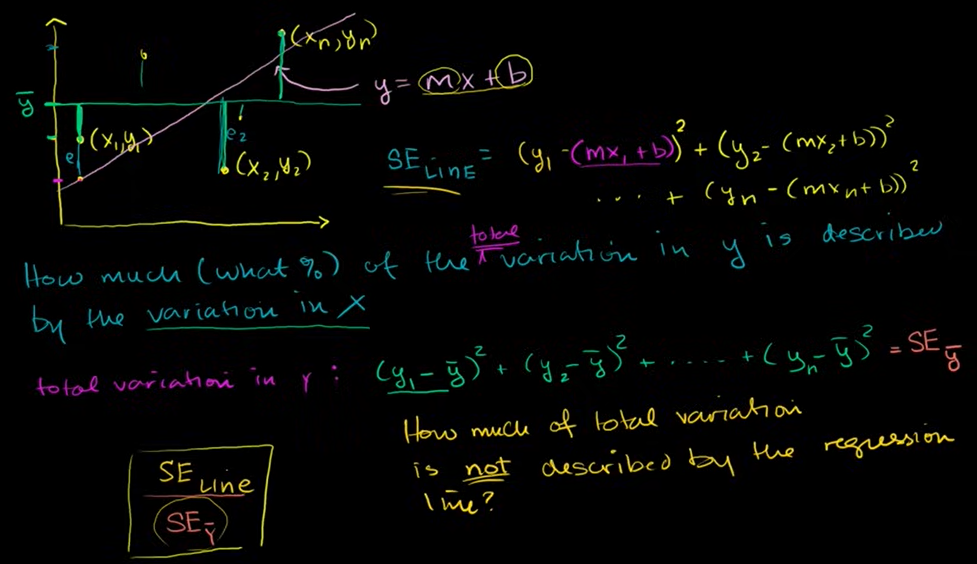 (xₙ, yₙ)
y = mx + b
ȳ
(x₁, y₁)
e
e₂
(x₂, y₂)
SE LINE = (y₁ - (mx₁ + b))² + (y₂ - (mx₂ + b))²
... + (yₙ - (mxₙ + b))²
How much (what %) of the total variation in y is described
by the variation in x
total variation in y : (y₁ - ȳ)² + (y₂ - ȳ)² + ..... + (yₙ - ȳ)² = SE ȳ
How much of total variation
is not described by the regression
line?
SE Line
SE ȳ